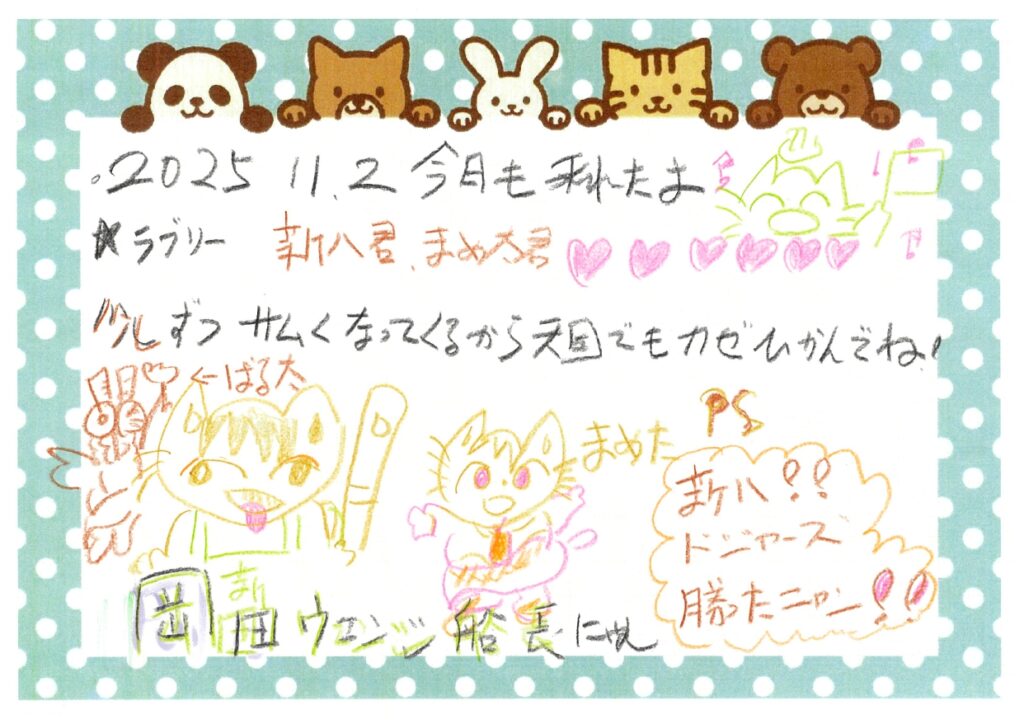 2025 11.2 今月も来れたよ
★ラブリー 新八君、まめ太君
少しずつサムくなってくるから天国でもカゼひかんでね!
←ぱる太
まめた
PS
新八!!
ドジャース
勝ったニャン!!
岡 新田 ウエンツ 船長にゃん